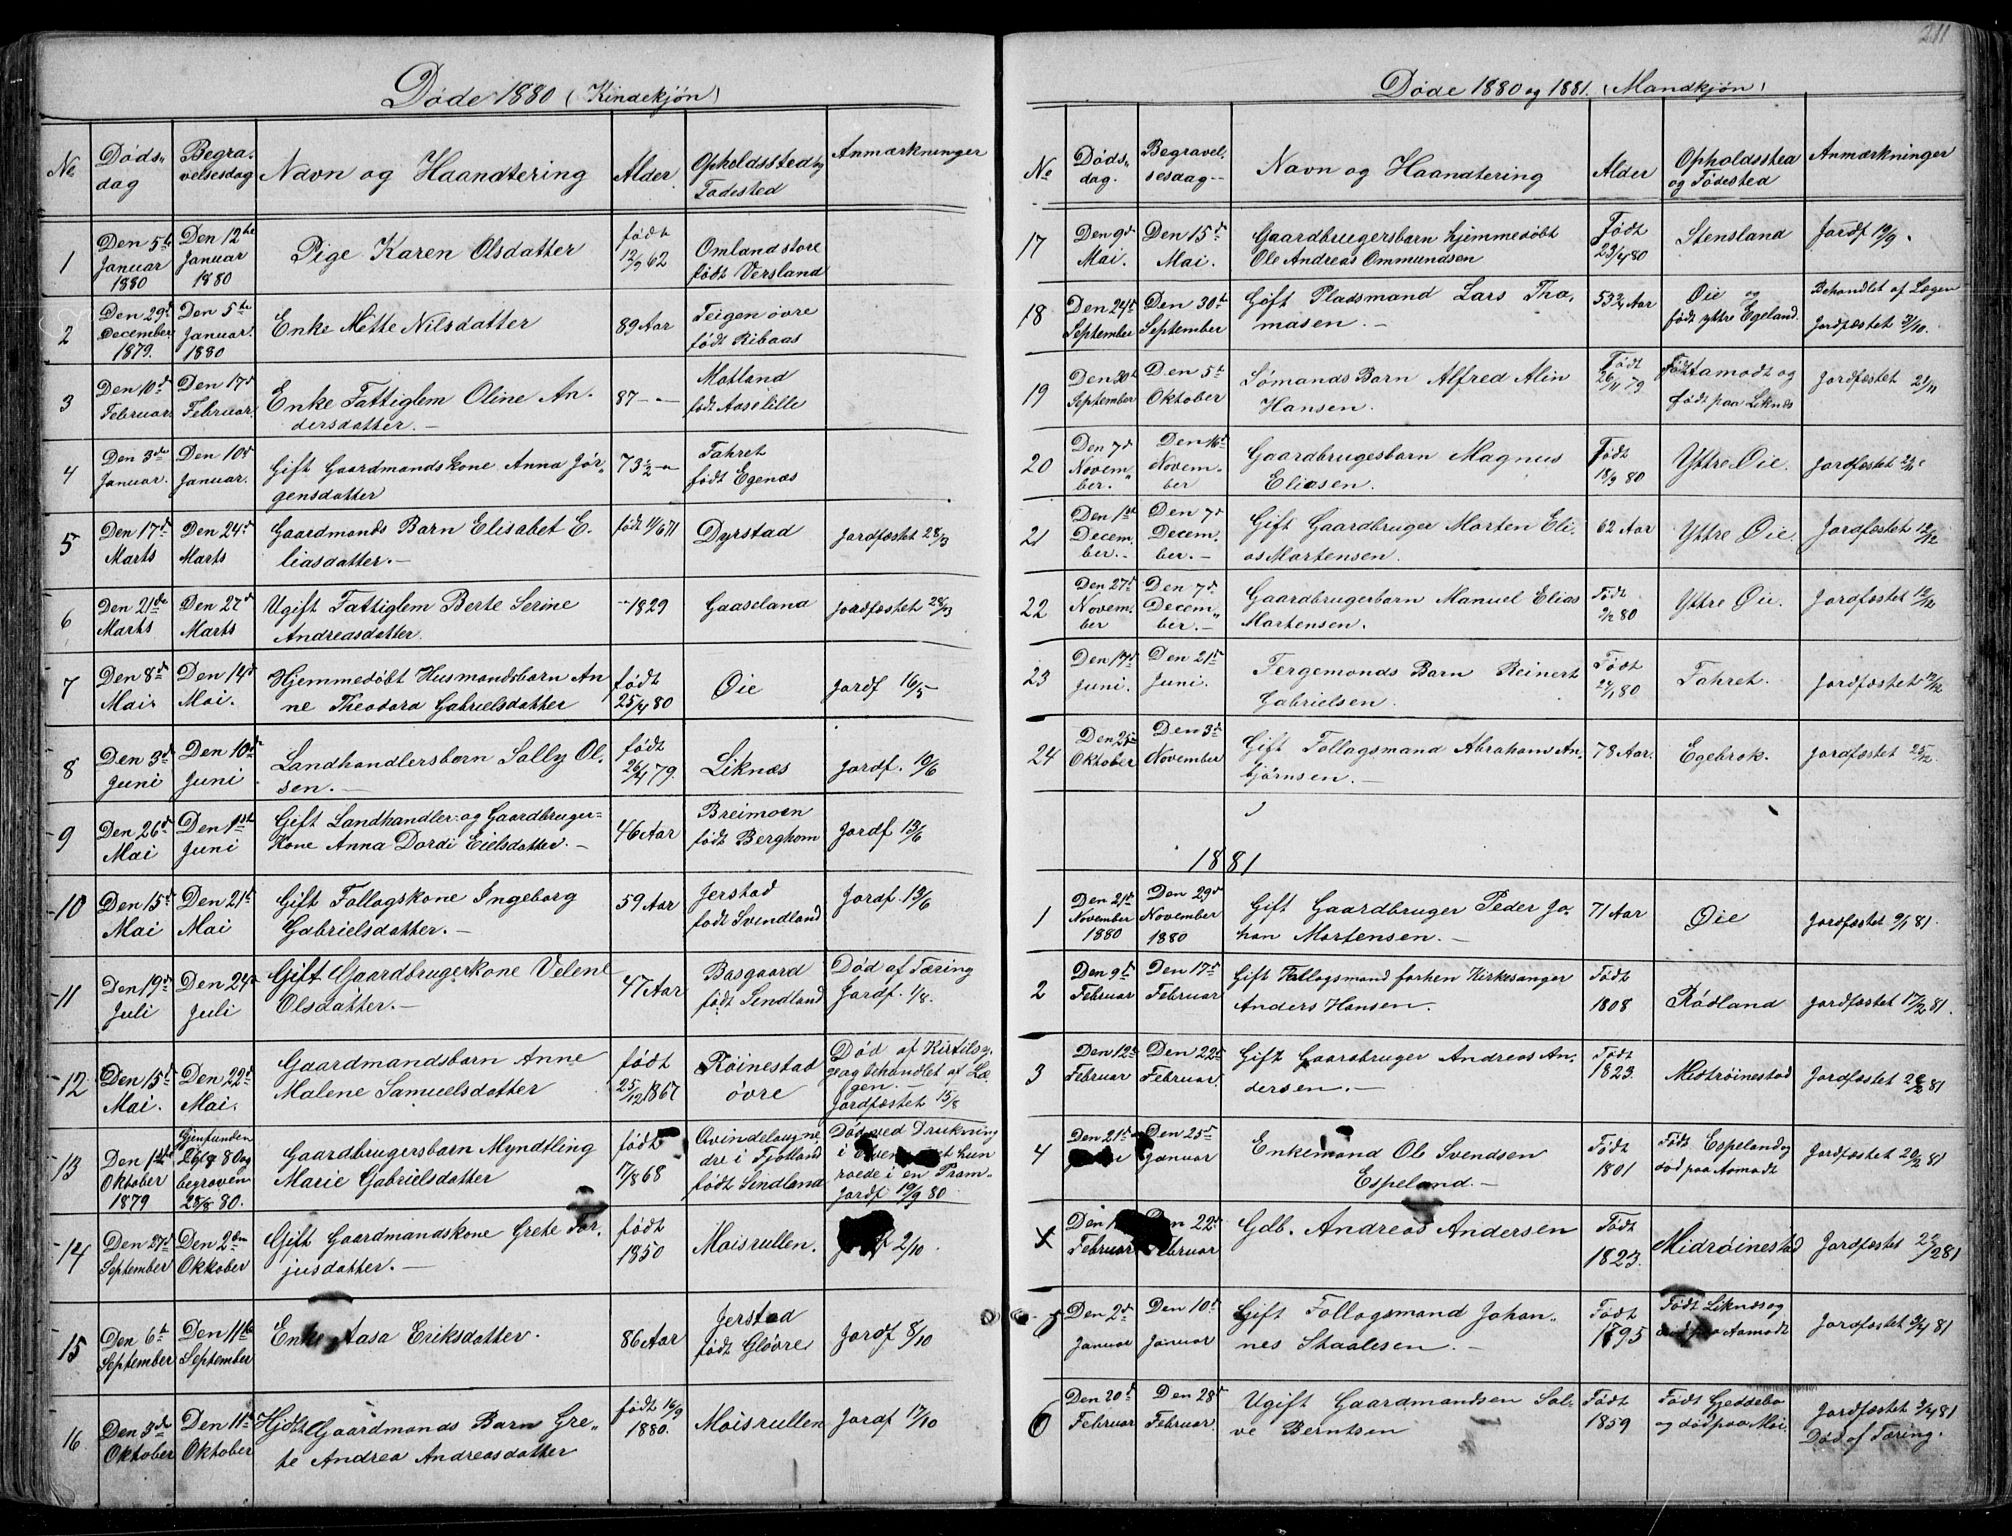 211
Døde 1880 (Kindekjøn)
No Døds- dag Begra- velsesdag Navn og Haandtering Alder Opholdssted og Fødested Anmærkninger
1 Den 5te Januar 1880 Den 12te Januar 1880 Pige Karen Olsdatter født 12/9 62 Omland store født Versland
2 Den 29d December 1879. Den 5te Januar 1880 Enke Mette Nilsdatter 89 Aar Teigen øvre født Ribaas
3 Den 10d Februar Den 17d Februar Enke Fattiglem Oline An-
dersdatter.— 87 - „ - Motland født Aaselille
4 Den 3de Januar. Den 10d Januar. Gift Gaardmandskone Anna Jør-
gensdatter 73½ - „ Fahret født Egenæs
5 Den 17d Marts Den 24d Marts Gaardmands Barn Elisabet E-
liasdatter.— født 11/6 71 Dyrstad Jordfæstet 28/3
6 Den 21de Marts Den 27d Marts Ugift Fattiglem Berte Serine
Andreasdatter. - 1829 Gaaseland Jordfæstet 28/3
7 Den 8d Mai Den 14d Mai. Hjemmedøbt Husmandsbarn An
ne Theodora Gabrielsdatter født 25/4 80 Øie Jordf 16/5
8 Den 3d Juni Den 10d Juni Landhandlersbarn Sally Ol-
sen.— født 26/4 79. Liknæs Jordf. 10/6
9 Den 26d Mai Den 1st Juni Gift Landhandler- og Gaardbruger-
Kone Anna Dordi Eielsdatter.— 46 Aar Breimoen født Berghom Jordf 13/6
10 Den 15d Mai Den 21d Mai Gift Follagskone Ingeborg
Gabrielsdatter.— 59 Aar Jerstad født Svindland Jordf 13/6
11 Den 19d Juli Den 24d Juli Gift Gaardbrugerkone Velene
Olsdatter.— 47 Aar Basgaard født Sindland Død af Tæring Jordf. 1/8.
12 Den 15d Mai. Den 22d Mai. Gaardmandsbarn Anne
Malene Samuelsdatter født 25/12 1867 Røinestad øvre Død af Kirtilsy- ge og behandlet af Læ- gen.— Jordfæstet 15/8
13 Den 1ste Oktober 1879 Gjenfunden 26/8 80 og begraven 28/8 80. Gaardbrugersbarn Myndtling
Marie Gabrielsdatter født 17/8 68 Qvindelaugne dre i Fjotland født Sindland Død ved Drukning i hun roede i en Pram. Jordf 19/9 80
14 Den 27d September Den 2den Oktober Gift Gaardmandskone Grete Tor-
jusdatter.— født 1850 Moisrullen. 2/10.
15 Den 6te September Den 11te September Enke Aasa Eriksdatter. 86 Aar Jerstad født Gløvre Jordf 8/10
16 Den 3de Oktober Den 11te Oktober Hjdbt Gaardmands Barn Gre-
te Andrea Andreasdatter født 16/9 1880. Moisrullen Jordf 17/10
Døde 1880 og 1881. (Mandkjøn)
No Døds- dag. Begravel- sesdag — Navn og Haandtering Alder Opholdsstea og Fødested Anmærkninger
17 Den 9d Mai. Den 15d Mai. Gaardbrugersbarn hjemmedøbt
Ole Andreas Ommundsen Født 23/4 80 Stensland Jordf 19/9.
18 Den 24d September Den 30te September Gift Pladsmand Lars Tho-
masen.— 53¾ Aar Øie og født yttre Egeland. Behandlet af Lægen Jordfæstet 3/10.
19 Den 30t September Den 5t Oktober Sømands Barn Alfred Alin
Hansen. Født 26/11 79 Aamodt og født paa Liknæs Jordfæstet 21/11
20 Den 7d Novem- ber. Den 16d Novem- ber Gaardbrugesbarn Magnus
Eliasen. Født 18/9 80 Yttre Øie. Jordfæstet
21 Den 1st Decem- ber.— Den 7d Decem- ber.— Gift Gaardbruger Morten Eli-
as Mortensen. 62 Aar Yttre Øie. Jordfæstet 12/12
22 Den 27d Novem- ber Den 7d Decem- ber.— Gaardbrugerbarn Manuel Elias
Mortensen. Født 2/12 80 Yttre Øie. Jordfæstet 12/12
23 Den 17d Juni. Den 21d Juni. Fergemands Barn Reinert
Gabrielsen. Født 24/1 80 Fahret. Jordfæstet 12/12
24 Den 25 Oktober Den 3d November Gift Follagsmand Abraham An-
bjørnsen.— 78 Aar. Egebrok. Jordfæstet 25/12.
1881
1 Den 21d November 1880 Den 29d November 1880 Gift Gaardbruger Peder Jo-
han Mortensen.— 71 Aar Øie Jordfæstet 9/1 81.
2 Den 9d Februar Den 17d Februar Gift Follagsmand forhen Kirkesanger
Anders Hansen. Født 1808 Rødland Jordfæstet 17/2 81.
3 Den 12d Februar Den 22d Februar. Gift Gaardbruger Andreas An-
dersen.— Født 1823. Midtrøinestad Jordfæstet 22/2 81
4 Den 21d Den 25d Januar Enkemand Ole Svendsen
Espeland.— Født 1801 Født Espeland og død paa Aamodt Jordfæstet 20/2 81
X Den Februar Den 22d Februar Gdb. Andreas Andersen Født 1823. Midrøinestad Jordfæstet 22/2 81
5 Den 2d Januar Den 10d Januar Gift Follagsmand Johan-
nes Skaalesen.— Født 1795 Født Liknæs og død paa Aamodt Jordfæstet 3/4 81
6 Den 20d Februar Den 28d Februar Ugift Gaardmandsen Sal-
ve Berntsen Født 1859 Født Geddebo og død paa Moi. Jordfæstet 3/4 81 Død af Tæring.